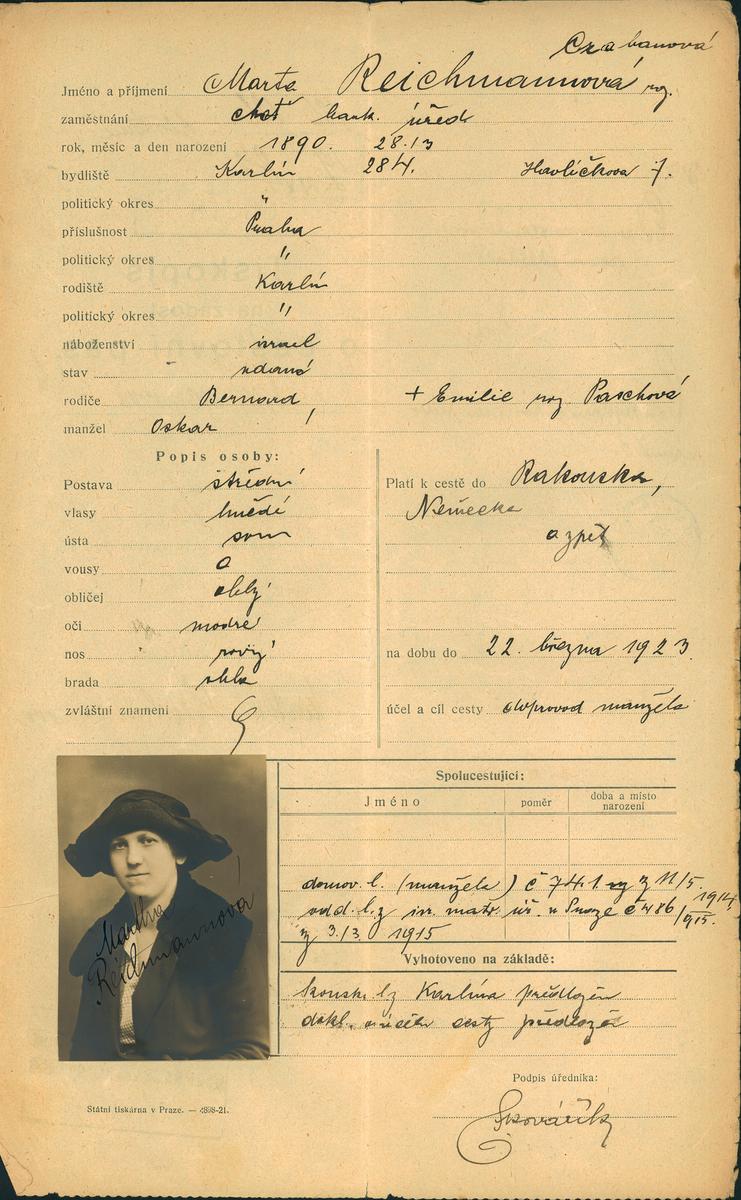 Crabanová
Jméno a příjmení Marta Reichmannová roz.
zaměstnání choť bank. úřed
rok, měsíc a den narození 1890. 28.13
bydliště Karlín 284. Havlíčkova 7.
politický okres "
příslušnost Praha
politický okres "
rodiště Karlín
politický okres "
náboženství israel
stav vdaná
rodiče Bernard + Emilie roz Paschová
manžel Oskar
Popis osoby:
Postava střední
vlasy hnědé
ústa soum
vousy 0
obličej oblý
oči modré
nos rovný
brada oblá
zvláštní znamení
Platí k cestě do Rakouska,
Německa
a zpět
na dobu do 22. března 1923.
účel a cíl cesty doprovod manžela
Spolucestující:
Jméno poměr doba a místo narození
domov. l. (manžela) č 741. z 11/5 1914,
odd. l. z isr. matr. úř. v Praze č 486/1915.
z 3./3. 1915
Vyhotoveno na základě:
Karlína předložen
dokl. o účelu cesty předložen
Martha
Reichmannová
Podpis úředníka:
Státní tiskárna v Praze. — 4898-21.